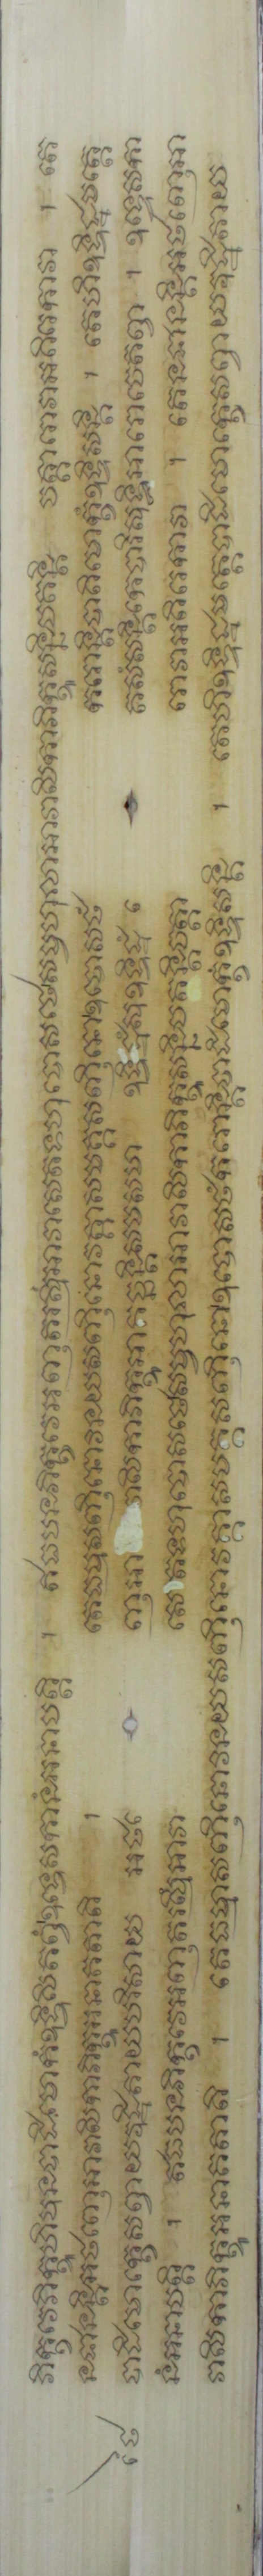 ភិក្ខវេភិក្ខូហិបុនបាដិមោក្ខំឧទ្ទិសិតព្វំឧទ្ទេសកានំអនាបត្តិ ។ ឥធបនភិក្ខវេអញ្ញតរស្មឹអាវាសេតទហុបោសថេសម្ពហុលាអាវាសិកាភិក្ខូសន្និបតន្តិ ចត្តារោវាអតិរេកាវា ។ តេ
នជានន្តិអថញ្ញេអាវាសិកាភិក្ខូអនាគតាតិ ។ តេធម្មសញ្ញិនោវិនយសញ្ញិនោវគ្គាសមគ្គសញ្ញិនោឧបោសថំ ករោន្តិបាតិមោក្ខំឧទ្ទិសន្តិ ។ តេហិឧទ្ទិដ្ឋមត្តេ
ថៃ បាដិមោក្ខេសព្វាយវុដ្ឋិតាយបរិសាយ អថ ញ្ញេអាវាសិកាភិក្ខូអាគច្ឆន្តិសមសមា ឧទ្ទិដ្ឋំសុឧទ្ទិដ្ឋំ តេសំសន្តិកេបារិសុទ្ធិអារោចេតព្វា ។ ឧទ្ទេសកា
នំអនាបត្តិ ។ ឥធបនភិក្ខវេអញ្ញតរស្មឹអាវា សេតទហុបោសថេសម្ពហុលាអាវាសិកាភិក្ខូសន្និបតន្តិចត្តា រោវាអតិរេកាវា ។ តេនជានន្តិអថញ្ញេអា
វាសិកាភិក្ខូអនាគតាតិ ។ តេធម្មសញ្ញិនោវិនយសញ្ញិនោវគ្គាសមគ្គសញ្ញិនោឧបោសថំករោន្តិបាដិមោក្ខំឧទ្ទិសន្តិ ។ តេហិឧទ្ទិដ្ឋមត្តេបាដិមោក្ខេសព្វាយវុដ្ឋិតាយ